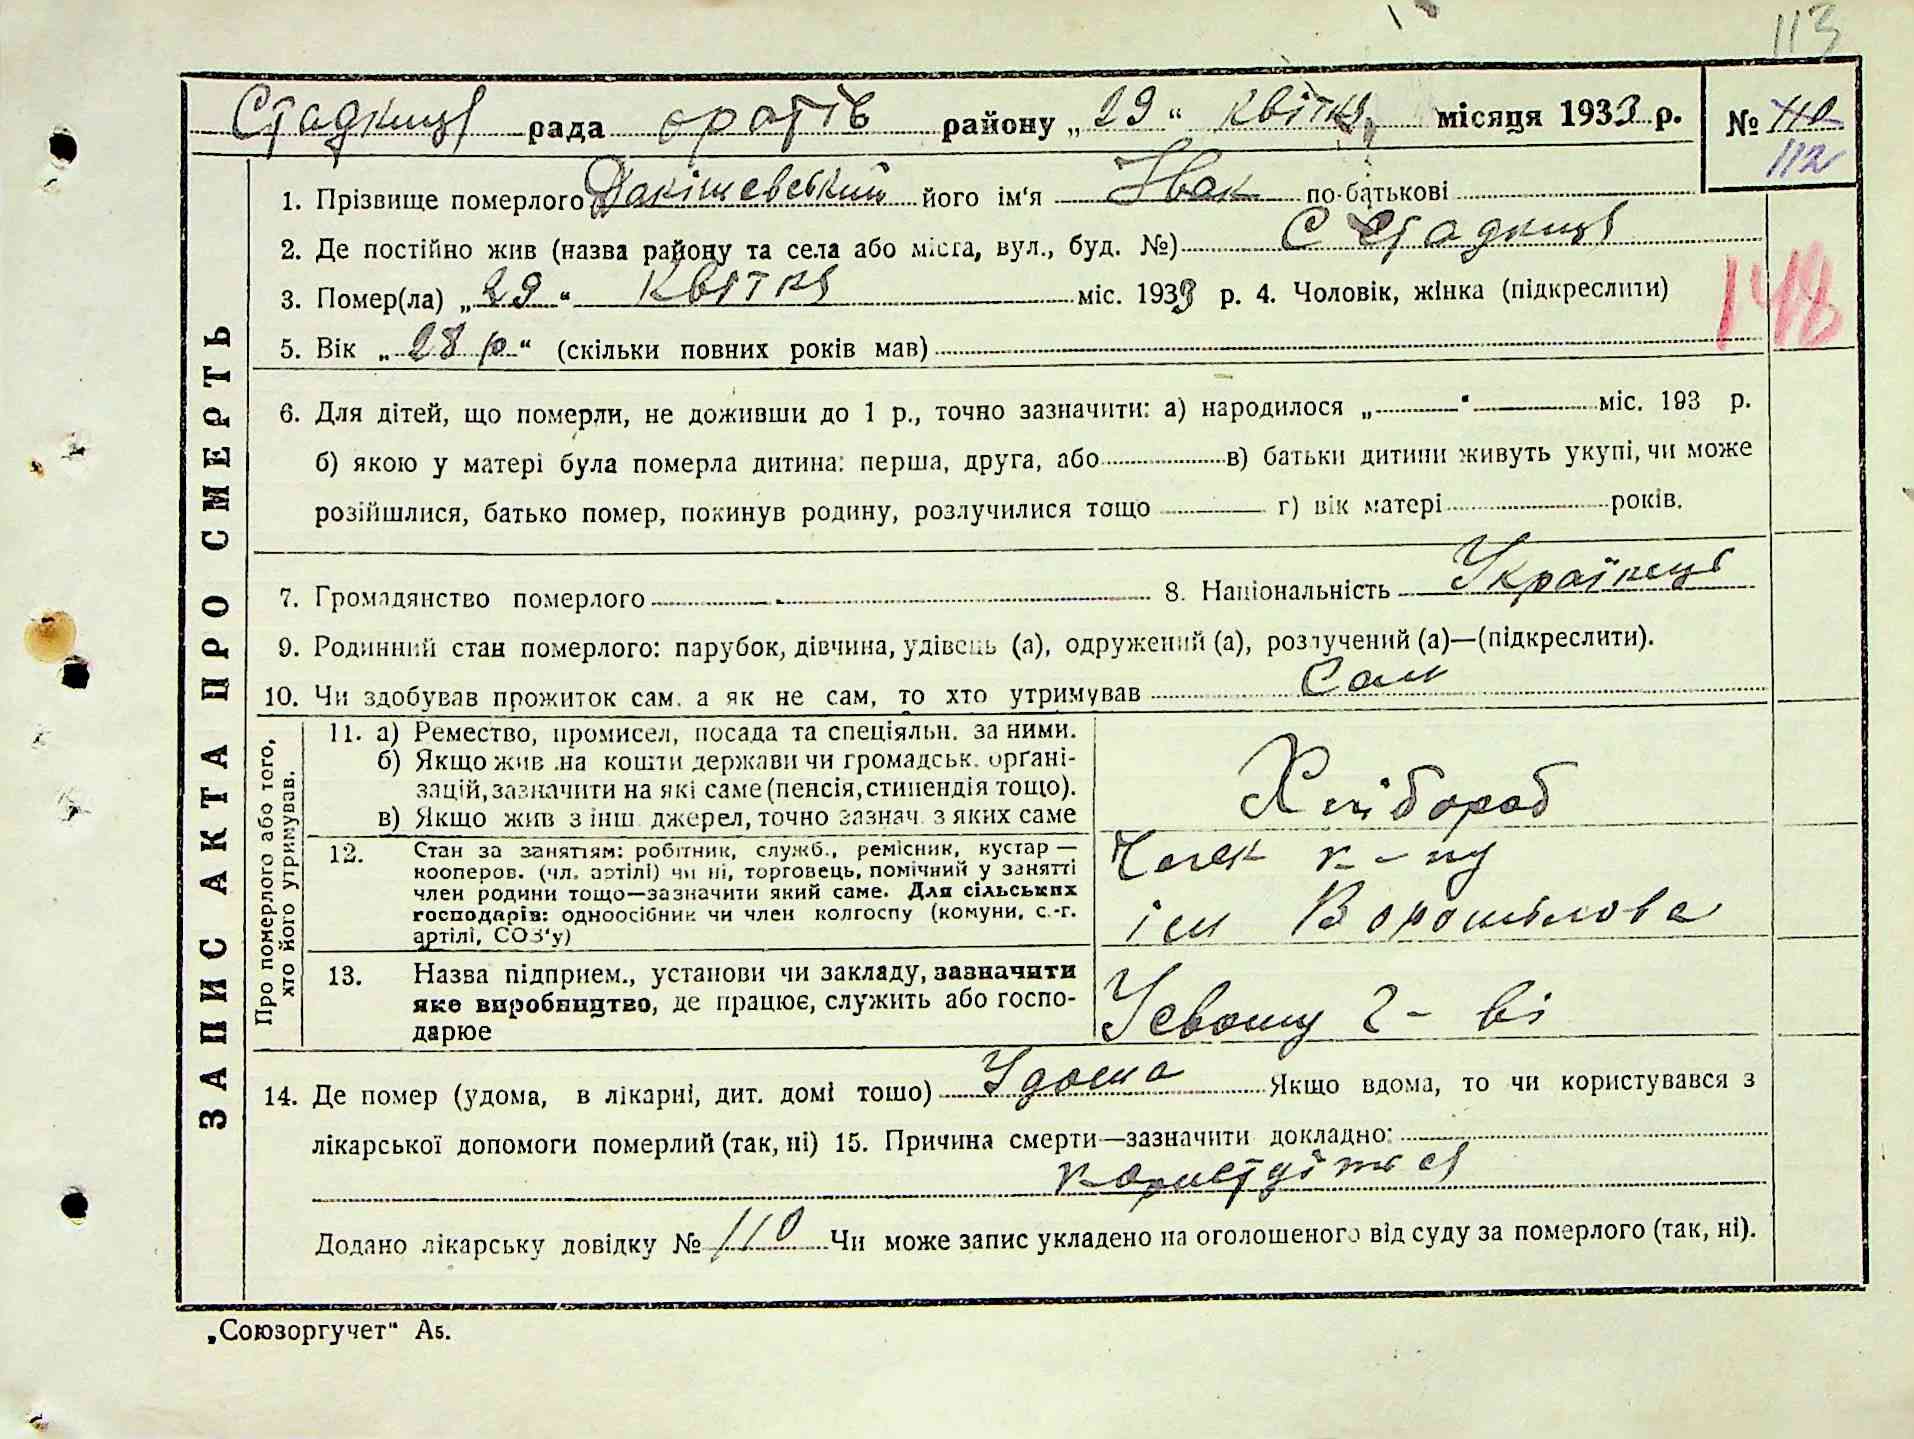 113
Стадниця рада оратів району „29“ квітня місяця 1933 р. № 110
112
ЗАПИС АКТА ПРО СМЕРТЬ
1. Прізвище померлого Дакішевський його ім'я Івак по-батькові
2. Де постійно жив (назва району та села або міста, вул., буд. №) С Стадниця
3. Помер(ла) „29“ квітня міс. 1933 р. 4. Чоловік, жінка (підкреслити)
148
5. Вік „28 р“ (скільки повних років мав)
6. Для дітей, що померли, не доживши до 1 р., точно зазначити: а) народилося „ “ міс. 193 р.
б) якою у матері була померла дитина: перша, друга, або в) батьки дитини живуть укупі, чи може
розійшлися, батько помер, покинув родину, розлучилися тощо г) вік матері років.
7. Громадянство померлого 8. Національність Українець
9. Родинний стан померлого: парубок, дівчина, удівець (а), одружений (а), розлучений (а)—(підкреслити).
10. Чи здобував прожиток сам, а як не сам, то хто утримував Сам
Про померлого або того, хто його утримував.
11. а) Ремество, промисел, посада та спеціяльн. за ними.
б) Якщо жив на кошти держави чи громадськ. орґані-
зацій, зазначити на які саме (пенсія, стипендія тощо).
в) Якщо жив з інш. джерел, точно зазнач. з яких саме
Хлібороб
12. Стан за заняттям: робітник, служб., ремісник, кустар —
кооперов. (чл. артілі) чи ні, торговець, помічний у занятті
член родини тощо—зазначити який саме. Для сільських
господарів: одноосібник чи член колгоспу (комуни, с.-г.
артілі, СОЗ'у)
Член к-пу
ім Ворошилова
13. Назва підприєм., установи чи закладу, зазначити
яке виробництво, де працює, служить або госпо-
дарює
У свошу г-ві
14. Де помер (удома, в лікарні, дит. домі тощо) Удома Якщо вдома, то чи користувався з
лікарської допомоги померлий (так, ні) 15. Причина смерти—зазначити докладно:
Додано лікарську довідку № 110 Чи може запис укладено на оголошеного від суду за померлого (так, ні).
„Союзоргучет“ А5.